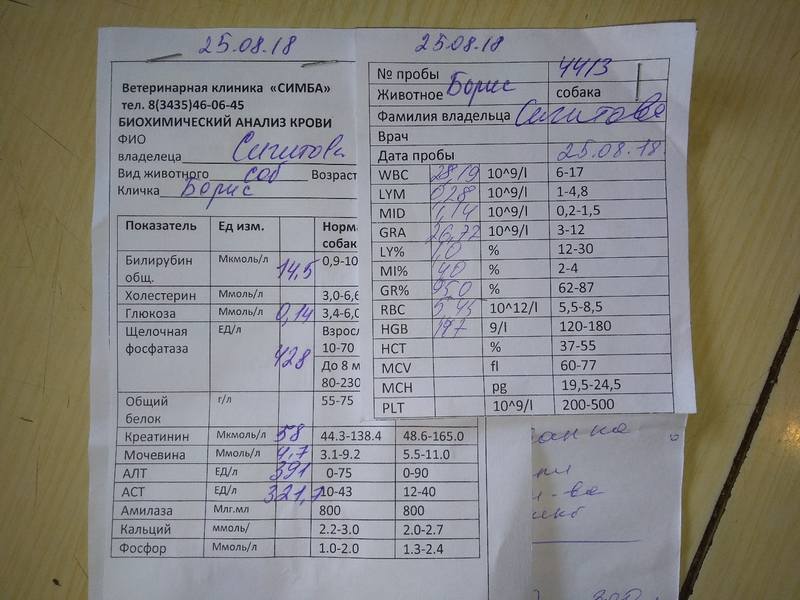 25.08.18
Ветеринарная клиника «СИМБА»
тел. 8(3435)46-06-45
БИОХИМИЧЕСКИЙ АНАЛИЗ КРОВИ
ФИО
владелеца
Вид животного соб Возраст
Кличка Борис
Показатель Ед изм. Норма
собак
Билирубин общ. Мкмоль/л 14,5 0,9-10
Холестерин Ммоль/л 3,0-6,6
Глюкоза Ммоль/л 0,14 3,4-6,0
Щелочная фосфатаза ЕД/л 428 Взросл
10-70
До 8 м
80-230
Общий белок г/л 55-75
Креатинин Мкмоль/л 58 44.3-138.4 48.6-165.0
Мочевина Ммоль/л 4,7 3.1-9.2 5.5-11.0
АЛТ ЕД/л 391 0-75 0-90
АСТ ЕД/л 321,7 10-43 12-40
Амилаза Млг.мл 800 800
Кальций ммоль/ 2.2-3.0 2.0-2.7
Фосфор Ммоль/л 1.0-2.0 1.3-2.4
25.08.18
№ пробы 4413
Животное Борис собака
Фамилия владельца
Врач
Дата пробы 25.08.18.
WBC 28,19 10^9/l 6-17
LYM 0,28 10^9/l 1-4,8
MID 1,14 10^9/l 0,2-1,5
GRA 26,72 10^9/l 3-12
LY% 1,0 % 12-30
MI% 4,0 % 2-4
GR% 95,0 % 62-87
RBC 10^12/l 5,5-8,5
HGB 197 9/l 120-180
HCT % 37-55
MCV fl 60-77
MCH pg 19,5-24,5
PLT 10^9/l 200-500